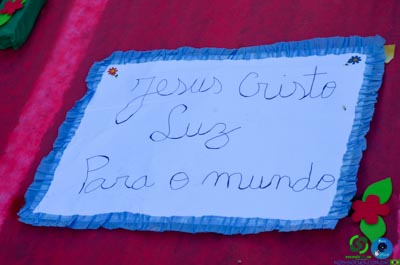 Jesus Cristo
Luz
Para o mundo